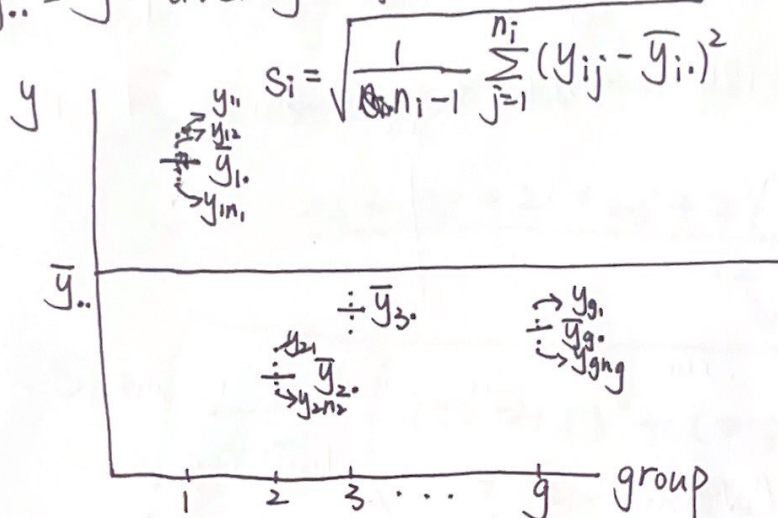 s_i = √( 1 / (n_i − 1) Σ_{j=1}^{n_i} (y_ij − ȳ_i.)² )
y
y_11
y_12
ȳ_1.
y_1n_1
ȳ..
ȳ_3.
y_g1
ȳ_g.
y_gn_g
y_21
ȳ_2.
y_2n_2
1 2 3 ... g group